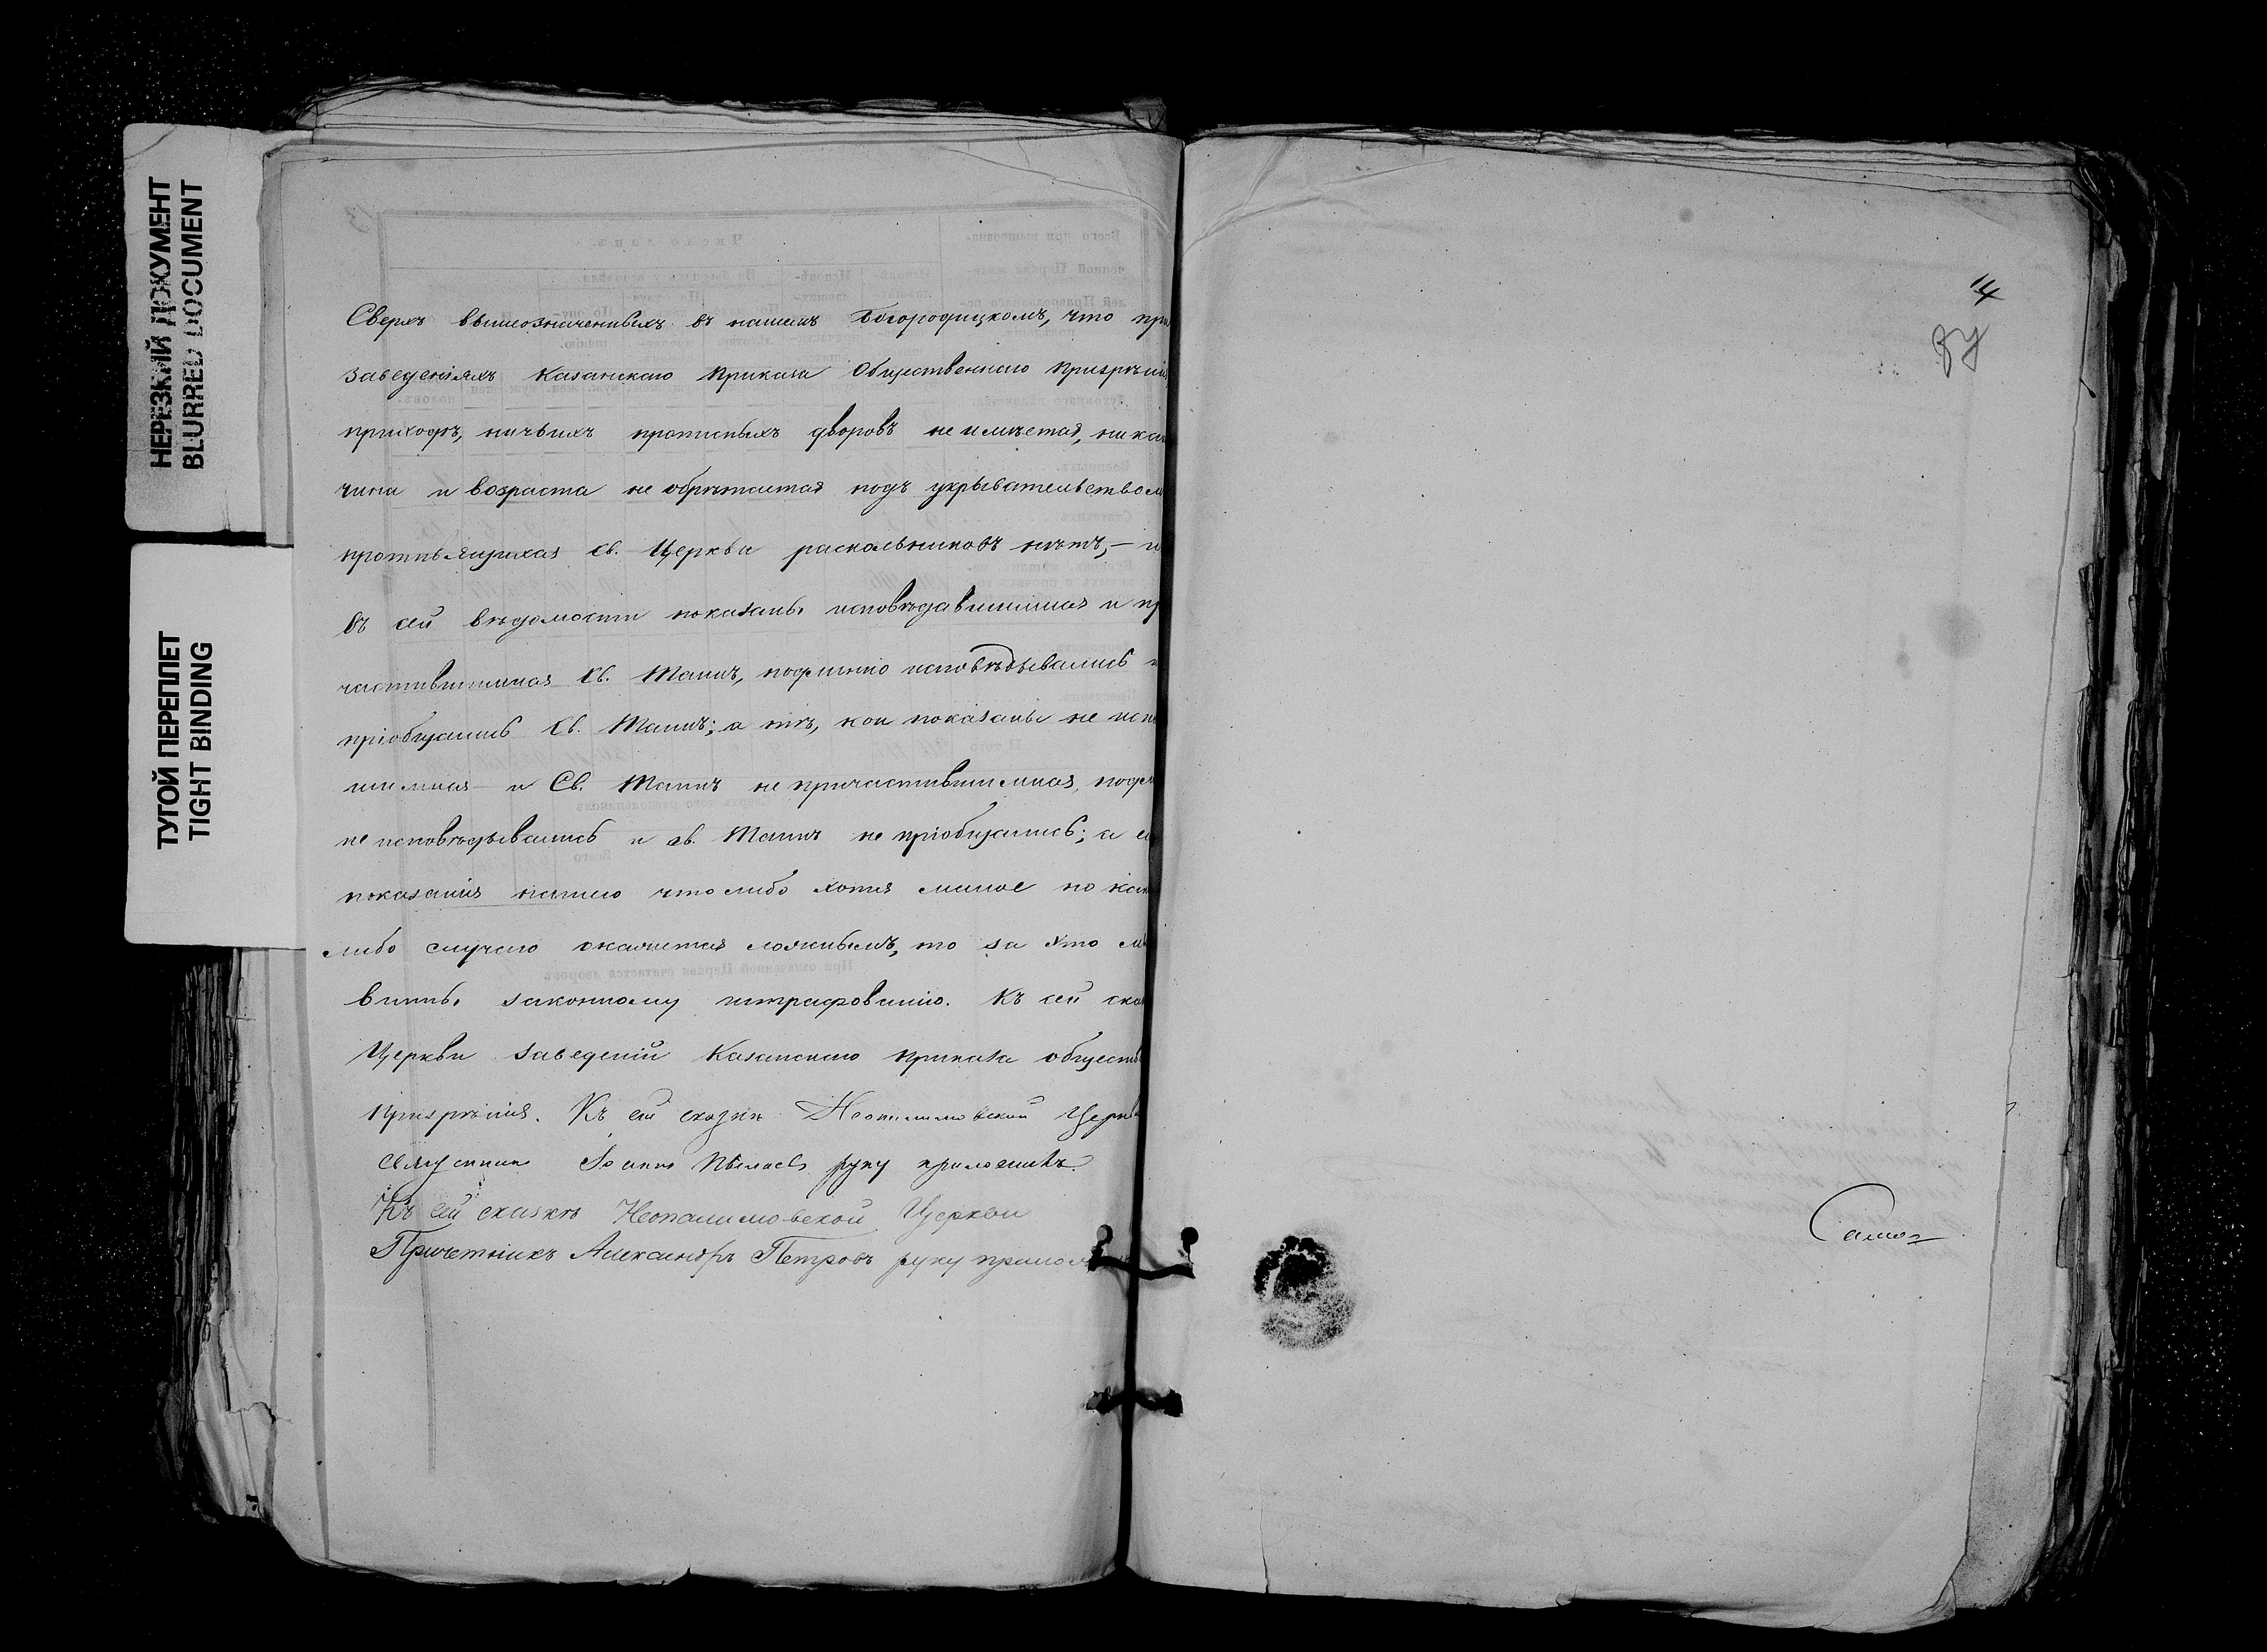 НЕРЕЗКИЙ ДОКУМЕНТ
BLURRED DOCUMENT
ТУГОЙ ПЕРЕПЛЕТ
TIGHT BINDING
Сверхъ вышеозначенныхъ въ нашемъ Богородицкомъ, что при
заведеніяхъ Казанскаго Приказа Общественнаго Призрѣнія
приходѣ, ничьихъ прописныхъ дворовъ не имѣется, ника
чина и возраста не обрѣтается подъ укрывательством
противящихся Св. Церкви раскольниковъ нѣтъ, – и
въ сей вѣдомости показаны исповѣдавшимися и пр
частившимися Св. Таинъ, подлинно исповѣдывались и
пріобщались Св. Таинъ; а тѣ, кои показаны не исп
шимися и Св. Таинъ не причастившимися, подл
не исповѣдывались и св. Таинъ не пріобщались; а е
показанія нашего что либо хотя малое по как
либо случаю окажется ложнымъ, то за это м
винны законному штрафованію. Къ сей ска
Церкви заведеній Казанскаго приказа обществ
призрѣнія. Къ сей сказкѣ Неопалимовской Церкв
священник Іоаннъ руку приложилъ.
Къ сей сказкѣ Неопалимовской Церкви
Причетникъ Александръ Петровъ руку прилож
14